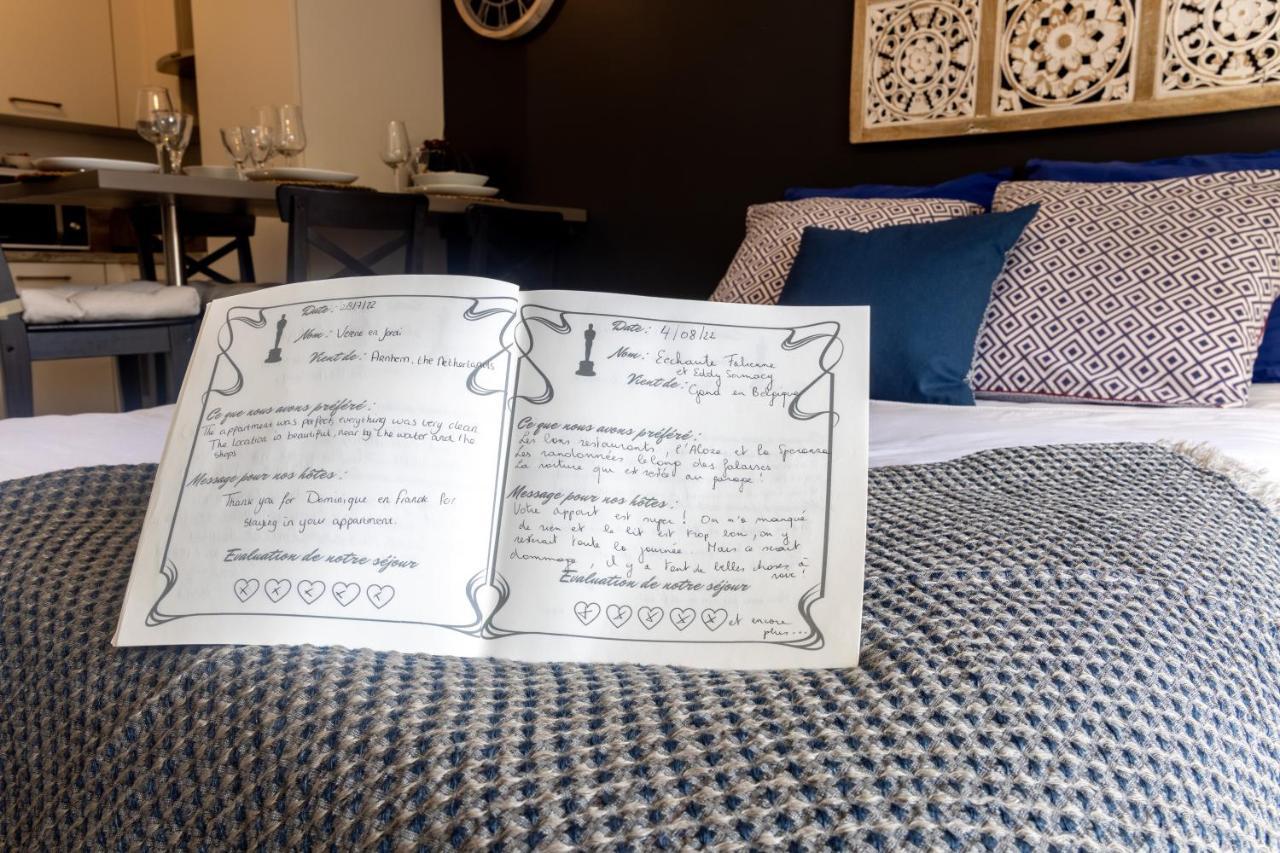 Date: 28/7/22
Nom: Verne en Jordi
Vient de: Arnhem, the Netherlands
Ce que nous avons préféré:
The appartment was perfect, everything was very clean
The location is beautiful, near by the water and the
shops
Message pour nos hôtes:
Thank you for Dominique en Franck for
staying in your appartment.
Evaluation de notre séjour
Date: 4/08/22
Nom: Eechaute Fabienne
et Eddy
Vient de: Gand en Belgique
Ce que nous avons préféré:
Les bons restaurants, l'Aloze et le
Les randonnées le long des falaises
La voiture qui est restée au garage!
Message pour nos hôtes:
Votre appart est super! On n'a manqué
de rien et le lit est trop bon, on y
resterait toute la journée. Mais ce serait
dommage, il y a tant de belles choses à
voir!
Evaluation de notre séjour
et encore
plus...